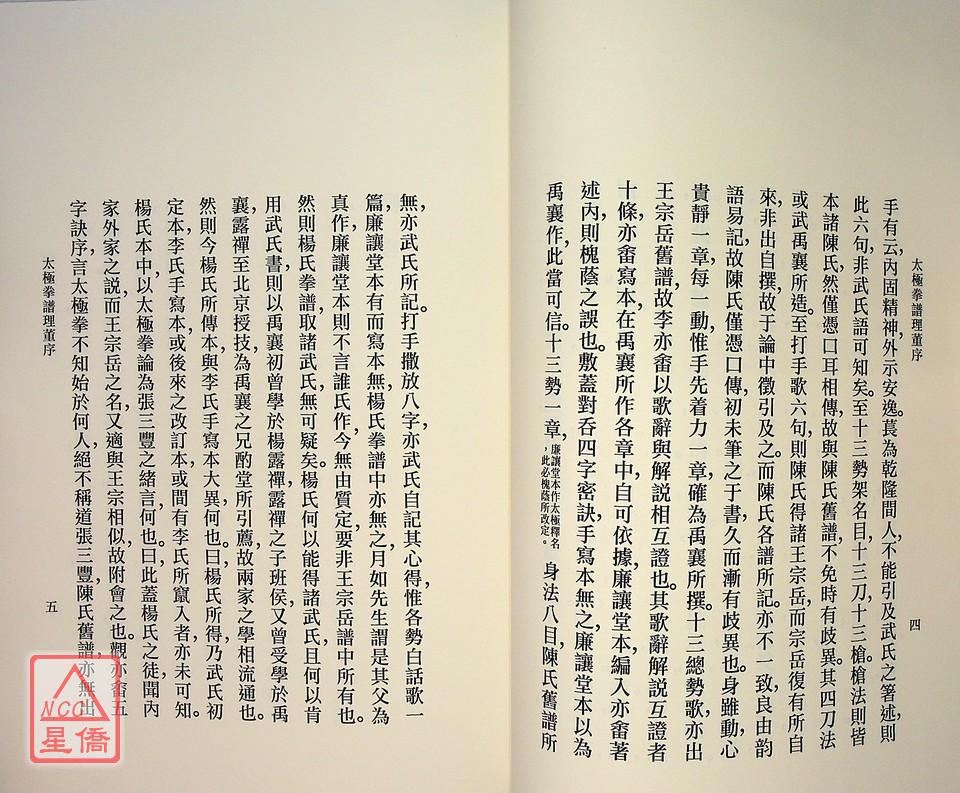 太極拳譜理董序
四
手有云，內固精神，外示安逸。萇為乾隆間人，不能引及武氏之箸述，則
此六句，非武氏語可知矣。至十三勢架名目，十三刀，十三槍，槍法，則皆
本諸陳氏，然僅憑口耳相傳，故與陳氏舊譜，不免時有歧異。其四刀法，
或武禹襄所造。至打手歌六句，則陳氏得諸王宗岳，而宗岳復有所自
來，非出自撰，故于論中徵引及之。而陳氏各譜所記，亦不一致，良由韵
語易記，故陳氏僅憑口傳，初未筆之于書，久而漸有歧異也。身雖動，心
貴靜一章，每一動，惟手先着力一章，確為禹襄所撰。十三總勢歌，亦出
王宗岳舊譜，故李亦畬以歌辭與解說相互證也。其歌辭解說互證者
十條，亦畬寫本，在禹襄所作各章中，自可依據，廉讓堂本，編入亦畬著
述內，則槐蔭之誤也。敷蓋對吞四字密訣，手寫本無之，廉讓堂本以為
禹襄作，此當可信。十三勢一章，廉讓堂本作太極釋名，此必槐蔭所改定。身法八目，陳氏舊譜所
無，亦武氏所記。打手撒放八字，亦武氏自記其心得，惟各勢白話歌一
篇，廉讓堂本有而寫本無，楊氏拳譜中亦無之，月如先生謂是其父為
真作，廉讓堂本則不言誰氏作，今無由質定，要非王宗岳譜中所有也。
然則楊氏拳譜，取諸武氏，無可疑矣。楊氏何以能得諸武氏，且何以肯
用武氏書，則以禹襄初曾學於楊露禪，露禪之子班侯，又曾受學於禹
襄，露禪至北京授技，為禹襄之兄酌堂所引薦，故兩家之學相流通也。
然則今楊氏所傳本，與李氏手寫本大異，何也。曰，楊氏所得，乃武氏初
定本，李氏手寫本，或後來之改訂本，或間有李氏所竄入者，亦未可知。
楊氏本中，以太極拳論為張三豐之緒言，何也。曰，此蓋楊氏之徒，聞內
家外家之說，而王宗岳之名，又適與王宗相似，故附會之也。觀亦畬五
字訣序，言太極拳不知始於何人，絕不稱道張三豐，陳氏舊譜，亦無出
太極拳譜理董序
五
太
NCC
星僑